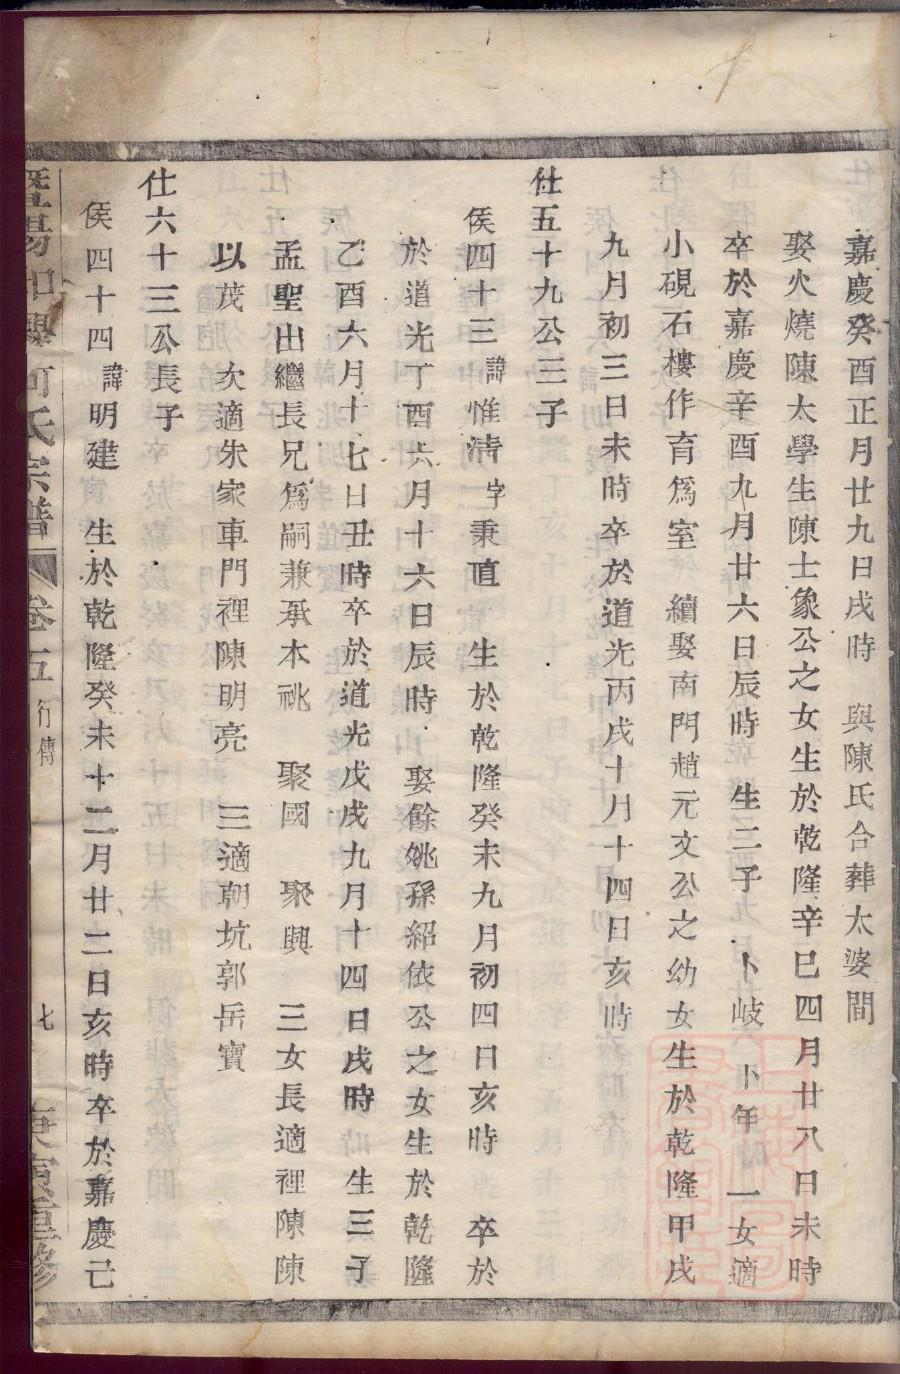 嘉慶癸酉正月廿九日戌時　與陳氏合葬太婆間
娶火燒陳太學生陳士象公之女生於乾隆辛巳四月廿八日未時
卒於嘉慶辛酉九月廿六日辰時　生二子　卜岐　卜年　一女適
小硯石樓作育爲室　續娶南門趙元文公之幼女生於乾隆甲戌
九月初三日未時卒於道光丙戌十月十四日亥時
仕五十九公三子
侯四十三諱惟清字秉直　生於乾隆癸未九月初四日亥時　卒於
於道光丁酉六月十六日辰時　娶餘姚孫紹依公之女生於乾隆
乙酉六月十七日丑時卒於道光戊戌九月十四日戌時　生三子
孟聖出繼長兄爲嗣兼承本祧　聚國　聚興　三女長適裡陳陳
以茂　次適朱家車門裡陳明亮　三適朝坑郭岳寶
仕六十三公長子
侯四十四諱明建　生於乾隆癸未十二月廿二日亥時卒於嘉慶己
暨陽和興何氏宗譜　卷五　行傳　七　庚寅重修